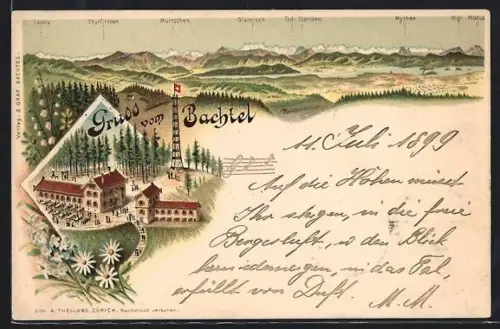 Säntis Churfirsten Murtschen Glärnisch Tödi Clariden Mythen Rigi Pilatus
Gruss vom Bachtel
Verlag: B. GRAF, BACHTEL.
11. Juli 1899
Auf die Höhen müsst
Ihr steigen, in die freie
Bergesluft, u den Blick
herniederneigen, in das Tal,
erfüllt von Duft. M. M.
Lith. A. THELLUNG, ZÜRICH. Nachdruck verboten.